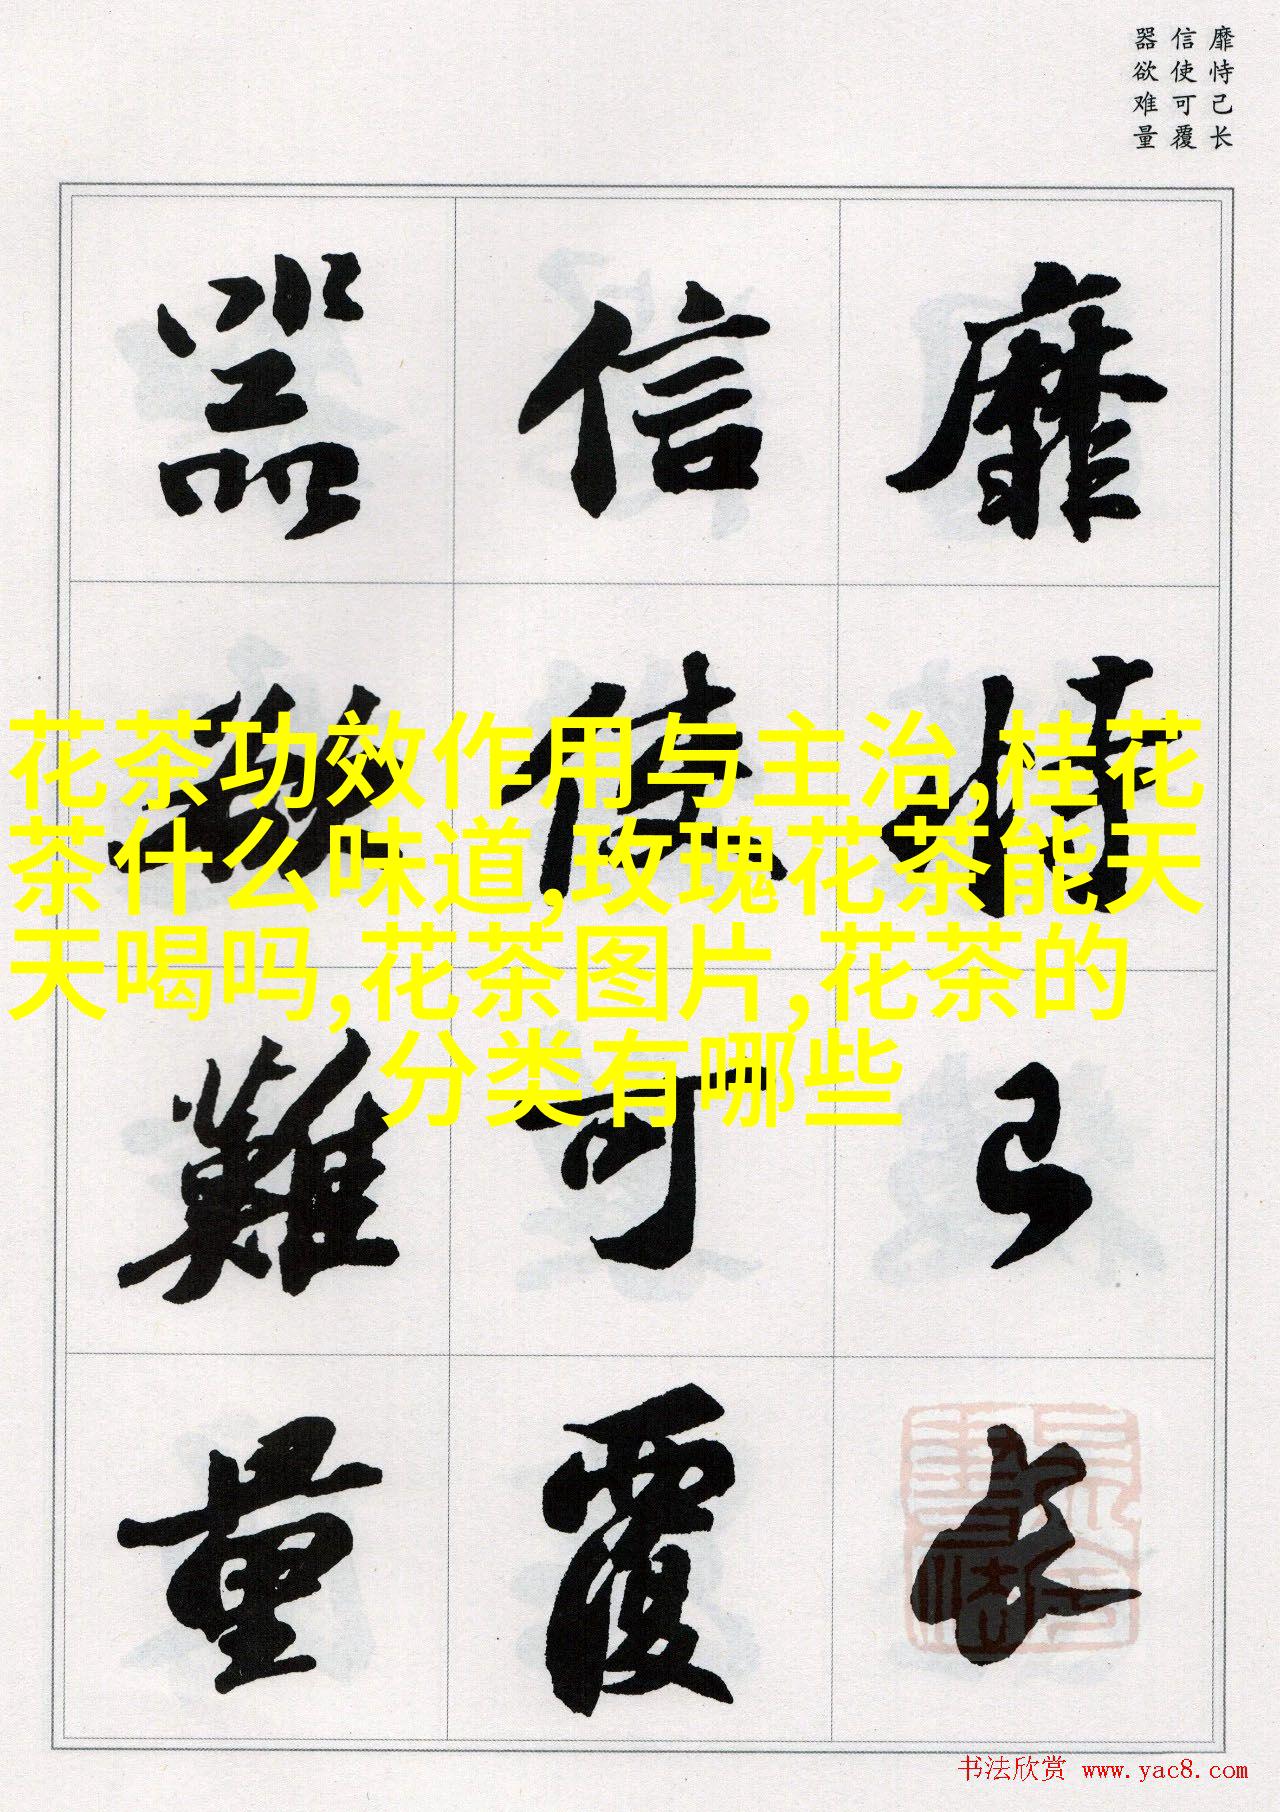 靡恃己长
信使可覆
器欲难量
靡恃己长
信使可覆
器欲難量
花茶功效作用与主治,桂花
茶什么味道,玫瑰花茶能天
天喝吗,花茶图片,花茶的
分类有哪些
书法欣赏 www.yac8.com